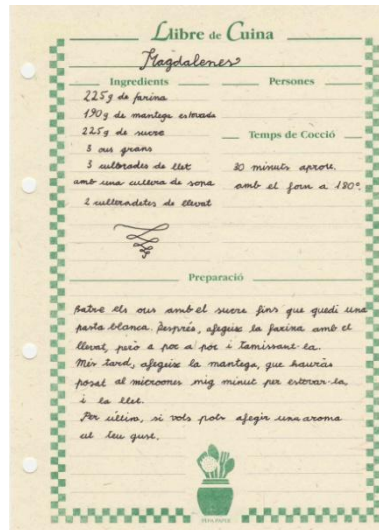 Llibre de Cuina
Magdalenes
Ingredients
Persones
225g de farina
190g de mantega estovada
225g de sucre
3 ous grans
3 cullerades de llet
amb una cullera de sopa
2 culleradetes de llevat
Temps de Cocció
30 minuts aprox.
amb el forn a 180º.
Preparació
Batre els ous amb el sucre fins que quedi una
pasta blanca. Després, afegeix la farina amb el
llevat, però a poc a poc i tamissant-la.
Més tard, afegeix la mantega, que hauràs
posat al microones mig minut per estovar-la,
i la llet.
Per últim, si vols pots afegir una aroma
al teu gust.